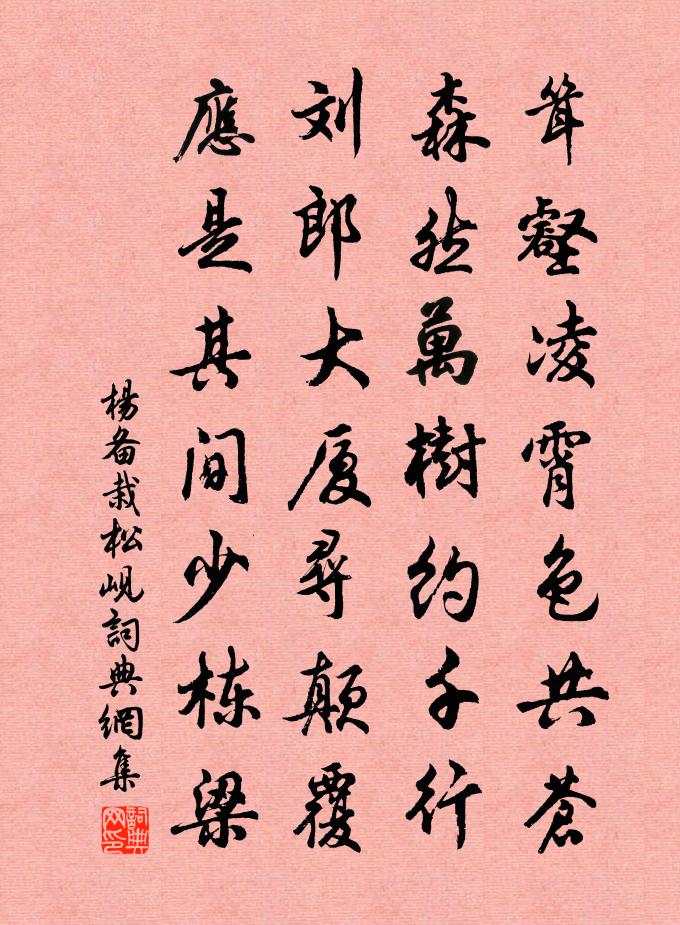 耸壑凌霄色共蒼
森然萬樹约千行
刘郎大厦尋颠覆
應是其间少栋梁
楊备栽松峴詞典網集
詞典网印